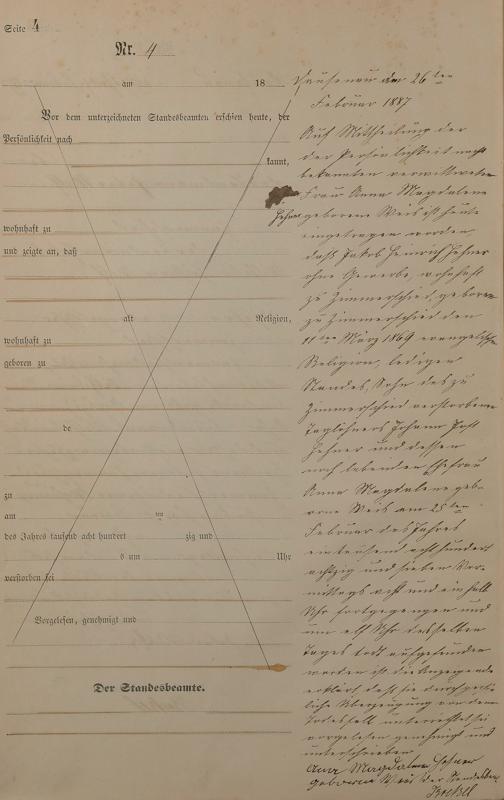 Seite 4
Nr. 4
am 18
Vor dem unterzeichneten Standesbeamten erschien heute, der
Persönlichkeit nach
kannt,
wohnhaft zu
und zeigte an, daß
alt Religion,
wohnhaft zu
geboren zu
de
zu
am ten
des Jahres tausend acht hundert zig und
s um Uhr
verstorben sei
Vorgelesen, genehmigt und
Der Standesbeamte.
Dausenau den 26 ten
Februar 1887
Auf Mittheilung der
der Persönlichkeit nach
bekannten verwittweten
Frau Anna Magdalene
Hehner geborene Weis ist heute
eingetragen worden,
daß Jakob Heinrich Hehner
ohne Gewerbe, wohnhaft
zu Zimmerschied, geboren
zu Zimmerschied den
11 ten März 1869 evangelischer
Religion, ledigen
Standes, Sohn des zu
Zimmerschied verstorbenen
Taglöhners Johann Jost
Hehner und dessen
noch lebenden Ehefrau
Anna Magdalene gebo-
rene Weis am 25 ten
Februar des Jahres
eintausend acht hundert
achtzig und sieben Vor-
mittags acht und ein halb
Uhr fortgegangen und
um elf Uhr desselben
Tages todt aufgefunden
worden ist. die Anzeigende
erklärt daß sie durch persön-
liche Überzeugung von dem
Todesfall unterrichtet sei
vorgelesen genehmigt und
unterschrieben
Anna Magdalene Hehner
geborene Weis der Standesbeamte